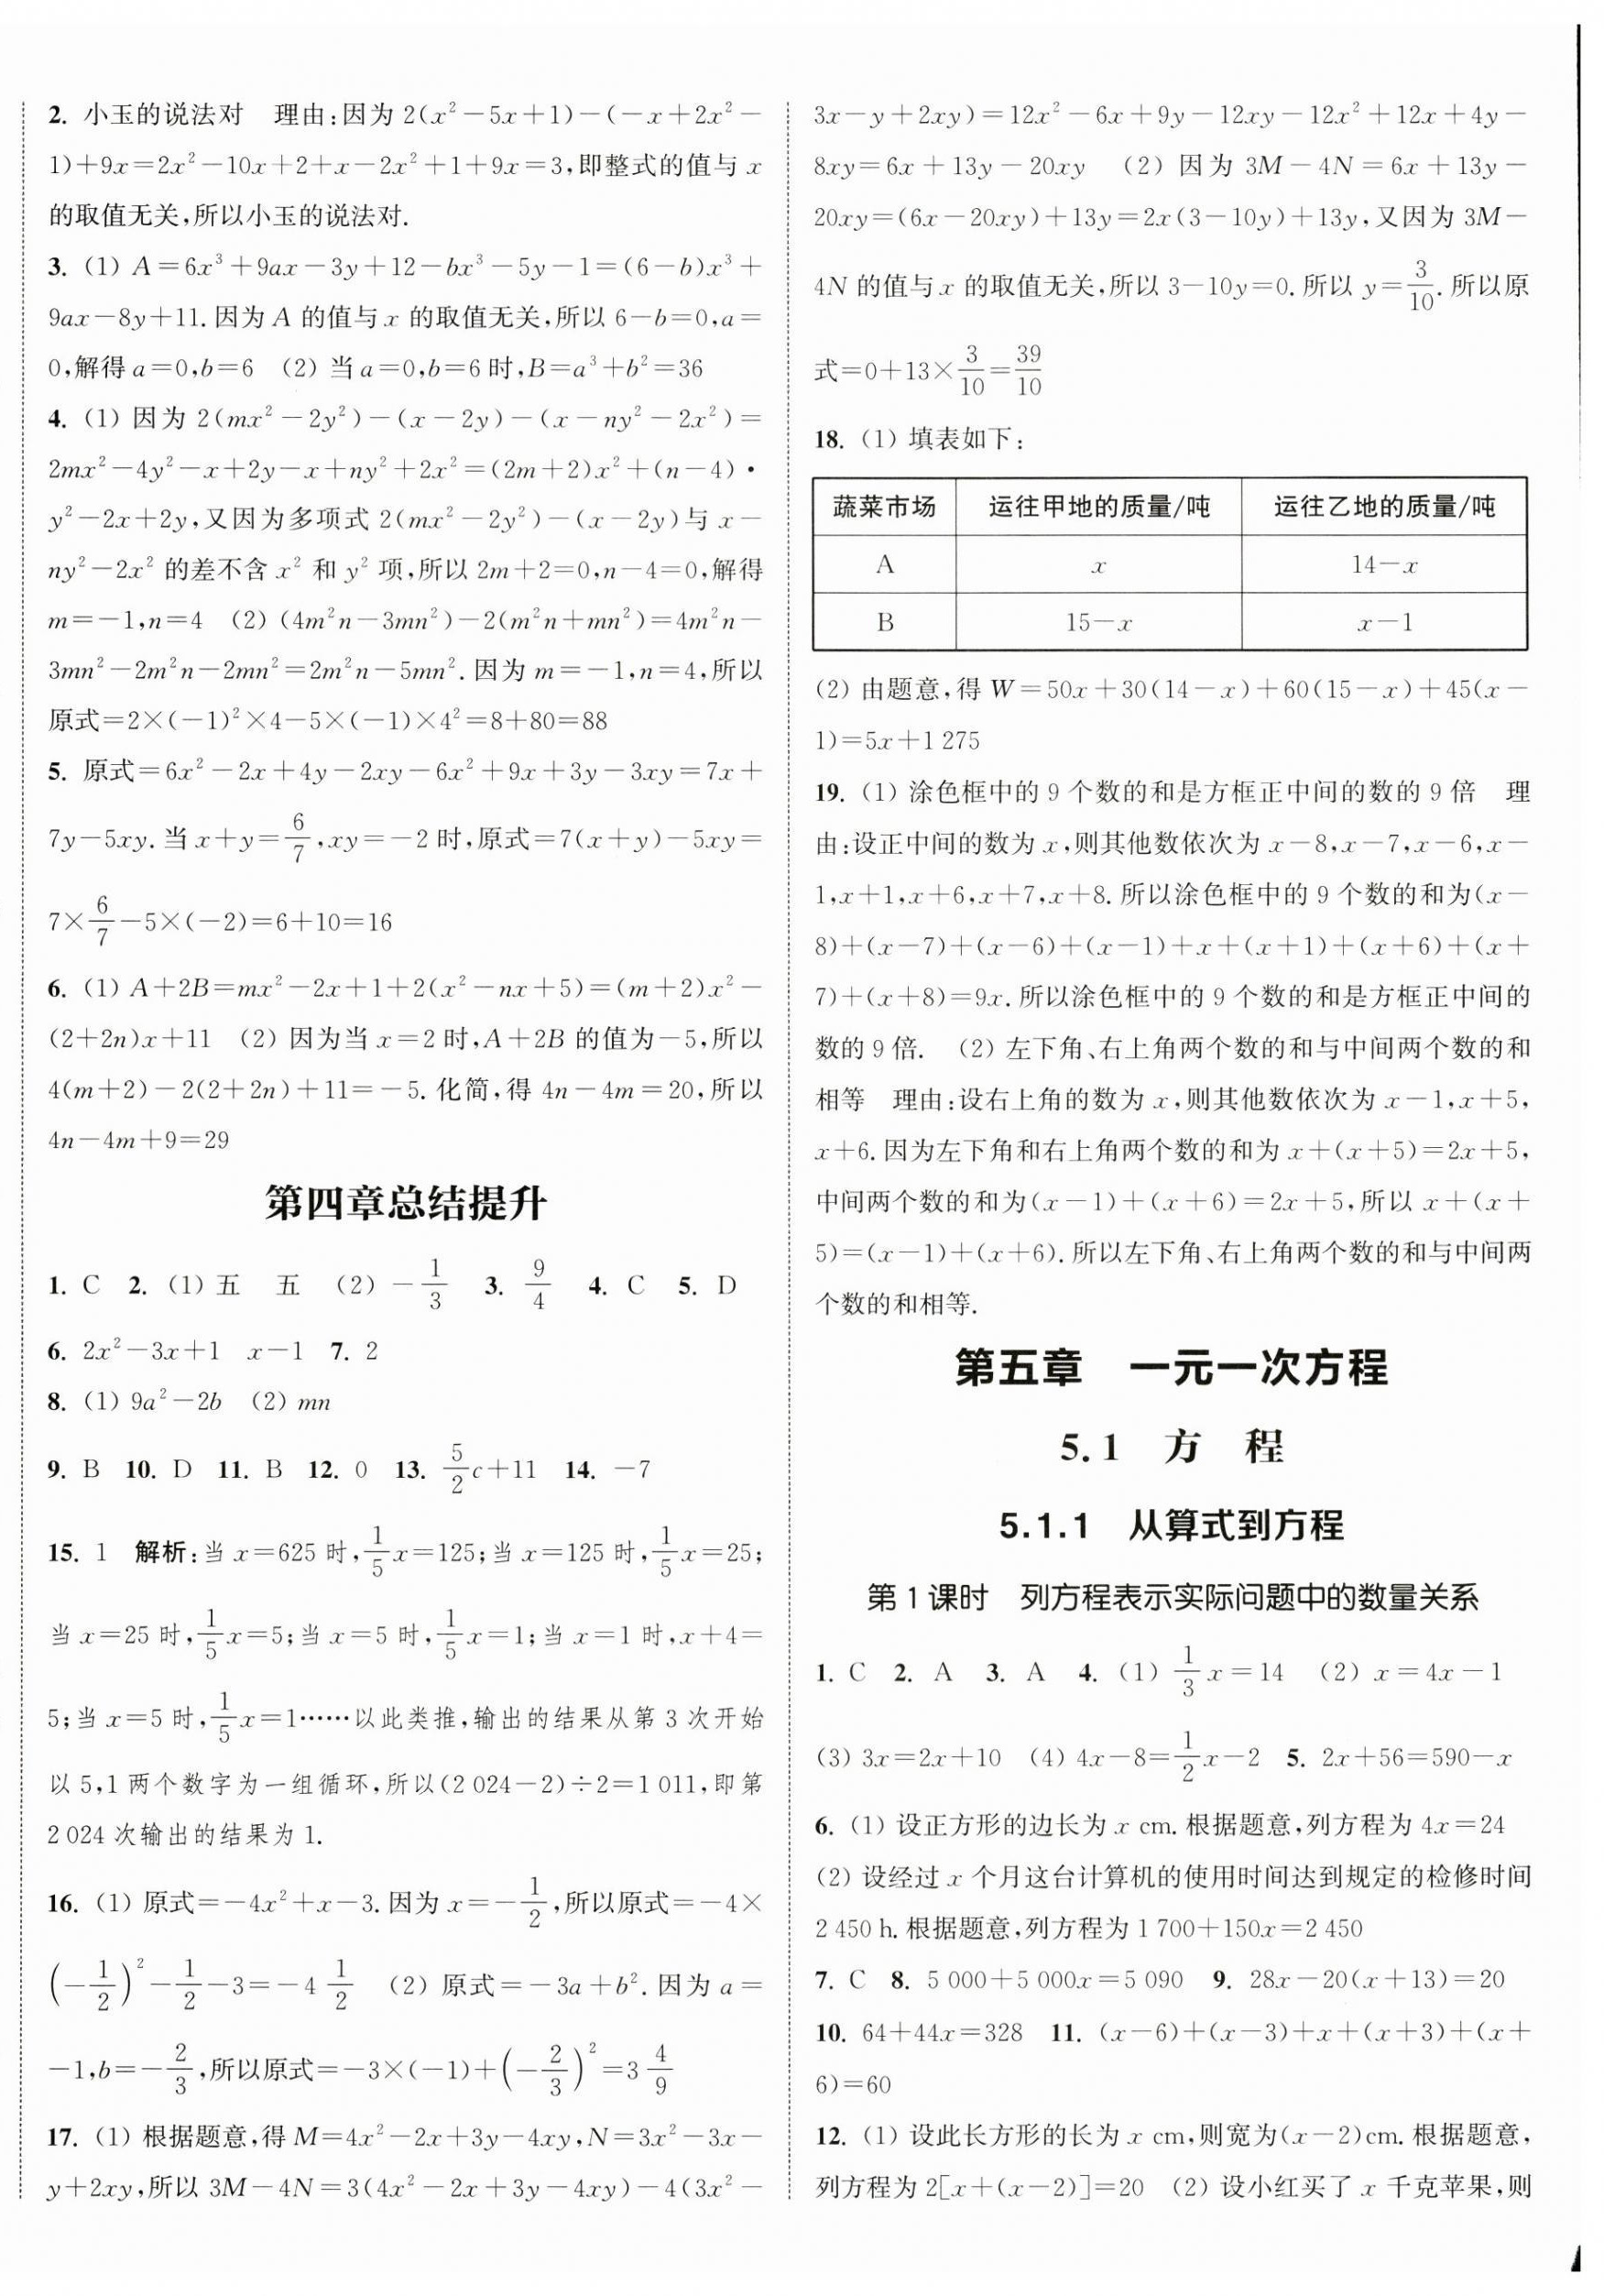 2. 小玉的说法对　理由:因为 2(x²－5x＋1)－(－x＋2x²－
1)＋9x＝2x²－10x＋2＋x－2x²＋1＋9x＝3,即整式的值与 x
的取值无关,所以小玉的说法对.
3. (1) A＝6x³＋9ax－3y＋12－bx³－5y－1＝(6－b)x³＋
9ax－8y＋11.因为 A 的值与 x 的取值无关,所以 6－b＝0,a＝
0,解得 a＝0,b＝6　(2) 当 a＝0,b＝6 时,B＝a³＋b²＝36
4. (1) 因为 2(mx²－2y²)－(x－2y)－(x－ny²－2x²)＝
2mx²－4y²－x＋2y－x＋ny²＋2x²＝(2m＋2)x²＋(n－4)·
y²－2x＋2y,又因为多项式 2(mx²－2y²)－(x－2y)与 x－
ny²－2x² 的差不含 x² 和 y² 项,所以 2m＋2＝0,n－4＝0,解得
m＝－1,n＝4　(2) (4m²n－3mn²)－2(m²n＋mn²)＝4m²n－
3mn²－2m²n－2mn²＝2m²n－5mn².因为 m＝－1,n＝4,所以
原式＝2×(－1)²×4－5×(－1)×4²＝8＋80＝88
5. 原式＝6x²－2x＋4y－2xy－6x²＋9x＋3y－3xy＝7x＋
7y－5xy.当 x＋y＝6/7,xy＝－2 时,原式＝7(x＋y)－5xy＝
7×6/7－5×(－2)＝6＋10＝16
6. (1) A＋2B＝mx²－2x＋1＋2(x²－nx＋5)＝(m＋2)x²－
(2＋2n)x＋11　(2) 因为当 x＝2 时,A＋2B 的值为－5,所以
4(m＋2)－2(2＋2n)＋11＝－5.化简,得 4n－4m＝20,所以
4n－4m＋9＝29
第四章总结提升
1. C　2. (1) 五　五　(2) －1/3　3. 9/4　4. C　5. D
6. 2x²－3x＋1　x－1　7. 2
8. (1) 9a²－2b　(2) mn
9. B　10. D　11. B　12. 0　13. 5/2c＋11　14. －7
15. 1　解析:当 x＝625 时,1/5x＝125;当 x＝125 时,1/5x＝25;
当 x＝25 时,1/5x＝5;当 x＝5 时,1/5x＝1;当 x＝1 时,x＋4＝
5;当 x＝5 时,1/5x＝1……以此类推,输出的结果从第 3 次开始
以 5,1 两个数字为一组循环,所以(2 024－2)÷2＝1 011,即第
2 024 次输出的结果为 1.
16. (1) 原式＝－4x²＋x－3.因为 x＝－1/2,所以原式＝－4×
(－1/2)²－1/2－3＝－4 1/2　(2) 原式＝－3a＋b².因为 a＝
－1,b＝－2/3,所以原式＝－3×(－1)＋(－2/3)²＝3 4/9
17. (1) 根据题意,得 M＝4x²－2x＋3y－4xy,N＝3x²－3x－
y＋2xy,所以 3M－4N＝3(4x²－2x＋3y－4xy)－4(3x²－
3x－y＋2xy)＝12x²－6x＋9y－12xy－12x²＋12x＋4y－
8xy＝6x＋13y－20xy　(2) 因为 3M－4N＝6x＋13y－
20xy＝(6x－20xy)＋13y＝2x(3－10y)＋13y,又因为 3M－
4N 的值与 x 的取值无关,所以 3－10y＝0.所以 y＝3/10.所以原
式＝0＋13×3/10＝39/10
18. (1) 填表如下:
蔬菜市场　运往甲地的质量/吨　运往乙地的质量/吨
A　x　14－x
B　15－x　x－1
(2) 由题意,得 W＝50x＋30(14－x)＋60(15－x)＋45(x－
1)＝5x＋1 275
19. (1) 涂色框中的 9 个数的和是方框正中间的数的 9 倍　理
由:设正中间的数为 x,则其他数依次为 x－8,x－7,x－6,x－
1,x＋1,x＋6,x＋7,x＋8.所以涂色框中的 9 个数的和为(x－
8)＋(x－7)＋(x－6)＋(x－1)＋x＋(x＋1)＋(x＋6)＋(x＋
7)＋(x＋8)＝9x.所以涂色框中的 9 个数的和是方框正中间的
数的 9 倍.　(2) 左下角、右上角两个数的和与中间两个数的和
相等　理由:设右上角的数为 x,则其他数依次为 x－1,x＋5,
x＋6.因为左下角和右上角两个数的和为 x＋(x＋5)＝2x＋5,
中间两个数的和为(x－1)＋(x＋6)＝2x＋5,所以 x＋(x＋
5)＝(x－1)＋(x＋6).所以左下角、右上角两个数的和与中间两
个数的和相等.
第五章　一元一次方程
5.1　方　程
5.1.1　从算式到方程
第 1 课时　列方程表示实际问题中的数量关系
1. C　2. A　3. A　4. (1) 1/3x＝14　(2) x＝4x－1
(3) 3x＝2x＋10　(4) 4x－8＝1/2x－2　5. 2x＋56＝590－x
6. (1) 设正方形的边长为 x cm.根据题意,列方程为 4x＝24
(2) 设经过 x 个月这台计算机的使用时间达到规定的检修时间
2 450 h.根据题意,列方程为 1 700＋150x＝2 450
7. C　8. 5 000＋5 000x＝5 090　9. 28x－20(x＋13)＝20
10. 64＋44x＝328　11. (x－6)＋(x－3)＋x＋(x＋3)＋(x＋
6)＝60
12. (1) 设此长方形的长为 x cm,则宽为(x－2)cm.根据题意,
列方程为 2[x＋(x－2)]＝20　(2) 设小红买了 x 千克苹果,则